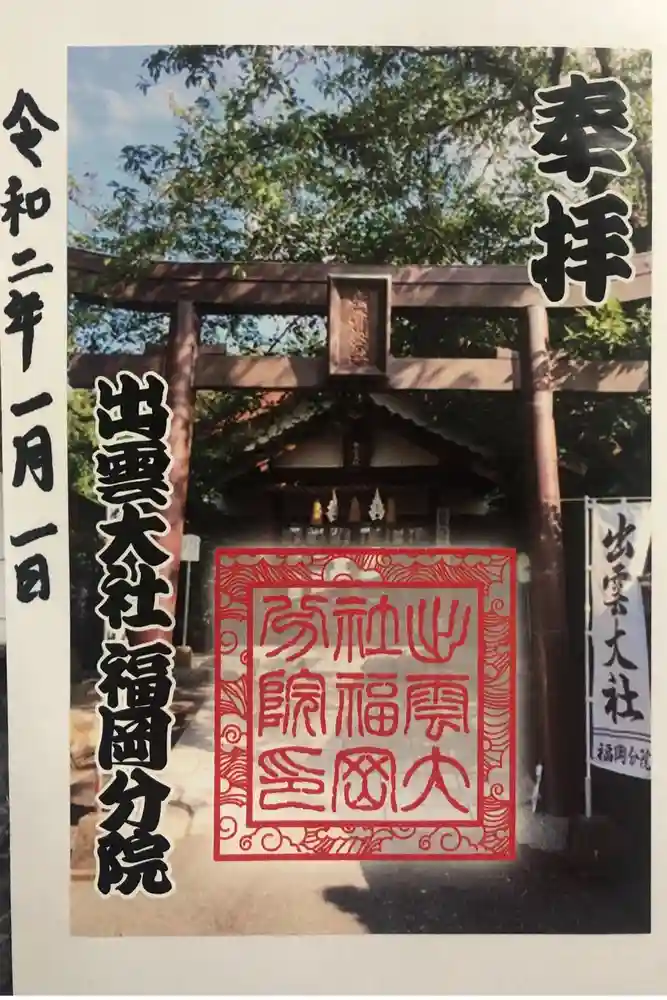 奉拝
出雲大社福岡分院
令和二年一月一日
出雲大
社福岡
分院印
出雲大社
福岡分院